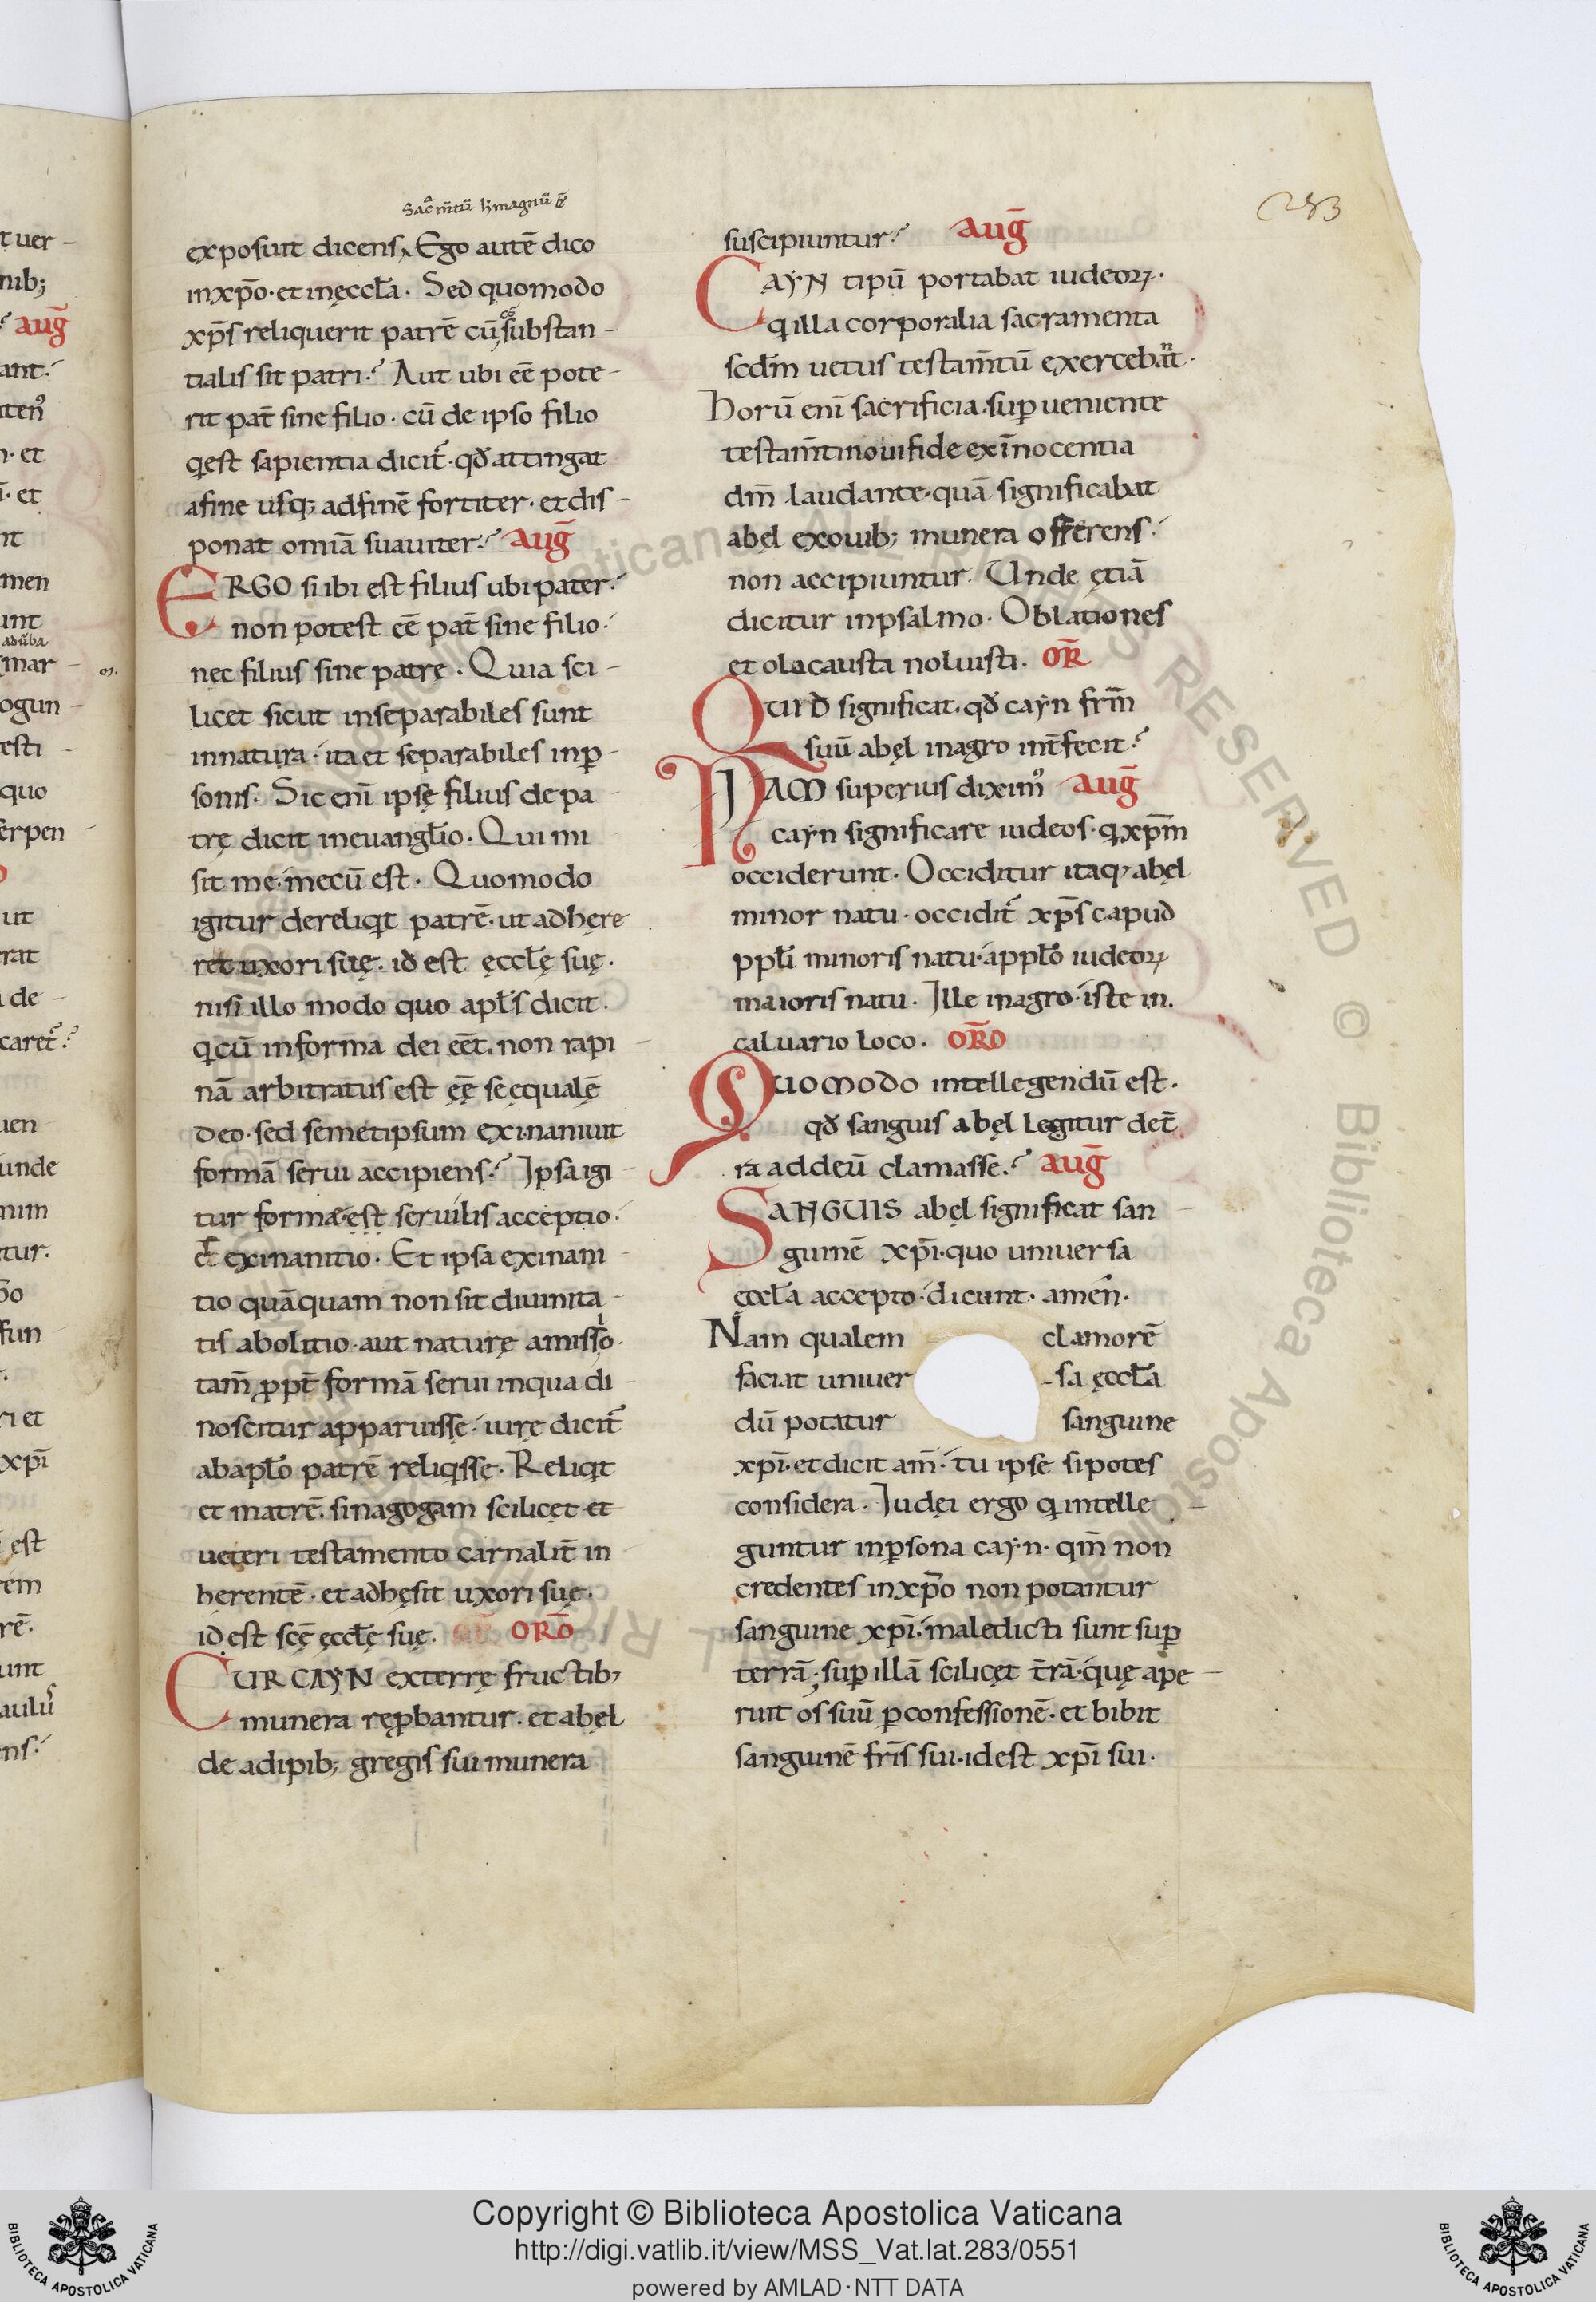 tuer-
nib;
aug̅
ant.
iten᾽
n· et
ī· et
nt
men
unt
adūba
mar-
ogun-
esti-
quo
erpen-
ut
rat
de-
caret̄?
uen-
unde
mim
tur.
p̄o
fun-
ri et
xpī
est
rem
rē.
unt
aulus
ens.
sacam̄tū h̵magnū ē
exposuit dicens, Ego autē dico
inxp̄o· et inęccl̄a. Sed quomodo
xp̄s reliquerit patrē cū, substan-
tialis sit patri? Aut ubi eē pote-
rit pat̄ sine filio· cū de ipso filio
qest sapientia dicit̄· qđ attingat
afine usq; adfinē fortiter· et dis-
ponat om̄ia suauiter? aug̅
ERGO si ibi est filius ubi pater?
non potest eē pat̄ sine filio·
nec filius sine patre. Quia sci-
licet sicut inseparabiles sunt
innatura· ita et separabiles inp̱-
sonis. Sic enī ipsę filius de pa
trę dicit ineuangl̄io. Qui mi
sit me· mecū est. Quomodo
igitur dereliqt patrē· ut adhęre
ret uxori suę· id est ęccl̄ę suę·
nisi illo modo quo apl̄s dicit.
qcū informa dei eēt, non rapi-
nā arbitratus est ęē se ęqualē
deo· sed semetipsum exinaniuit
formā serui accipiens? Ipsa igi-
tur formæ· est seruilis acceptio·
et exinanitio. Et ipsa exinani-
tio quāquam non sit diuinita-
tis abolitio· aut naturę amissio·
tam̄ ꝓpt̄ formā serui inqua di-
noscitur apparuisse· iurę dicit̄
abapl̄o patrē reliqsse. Reliqt
et matrē· sinagogam scilicet et
ueteri testamento carnalit̄ in
hęrentē· et adhęsit uxori suę·
id est scę̄ ęccl̄ę suę. ORO̅
CUR CAYN exterrę fructib;
munera reꝓbantur· et abel
de adipib; gregis sui munera
suscipiuntur? Aug̅
CAYN tipū portabat iudeoꝝ·
qilla corporalia sacramenta
scđm uetus testam̄tū exercebant·
horū enī sacrificia· suꝑueniente
testam̄ti noui fide exīnocentia
dm̄ laudante· quā significabat
abel exouib; munera offerens·
non accipiuntur. Unde ętiā
dicitur inpsalmo. Oblationes
et olacausta noluisti. OR̅
QUID significat· qđ cayn frm̄
suū abęl inagro int̄fecit?
NAM superius dixim᾽ aug̅
cayn significare iudeos· qxpm̄
occiderunt. Occiditur itaq; abęl
minor natu· occidit̄ xp̄s caput
ppl̄i minoris natu· appl̄o iudeoꝝ
maioris natu. Ille inagro· iste in.
caluario loco. ORO̅
QUOMODO intellegendū est·
qđ sanguis abęl legitur det̄
ra addeū clamasse? aug̅
SANGUIS abęl significat san-
guinē xpī· quo uniuersa
ęccl̄a accepto· dicunt· amēn·
Nam qualem clamorē
faciat uniuer-sa ęccl̄a
dū potatur sanguine
xpī· et dicit am̄· tu ipse si potes
considera. Iudęi ergo qintelle-
guntur inꝑsona cayn· qm̄ non
credentes inxp̄o non potantur
sanguine xpī· maledicti sunt suꝑ
terrā; suꝑ illā scilicęt t̄rā· quę ape-
ruit os suū ꝑconfessionē· et bibit
sanguinē fr̄is sui· idest xpī sui·
283
Copyright © Biblioteca Apostolica Vaticana
http://digi.vatlib.it/view/MSS_Vat.lat.283/0551
powered by AMLAD·NTT DATA
BIBLIOTECA APOSTOLICA VATICANA
BIBLIOTECA APOSTOLICA VATICANA